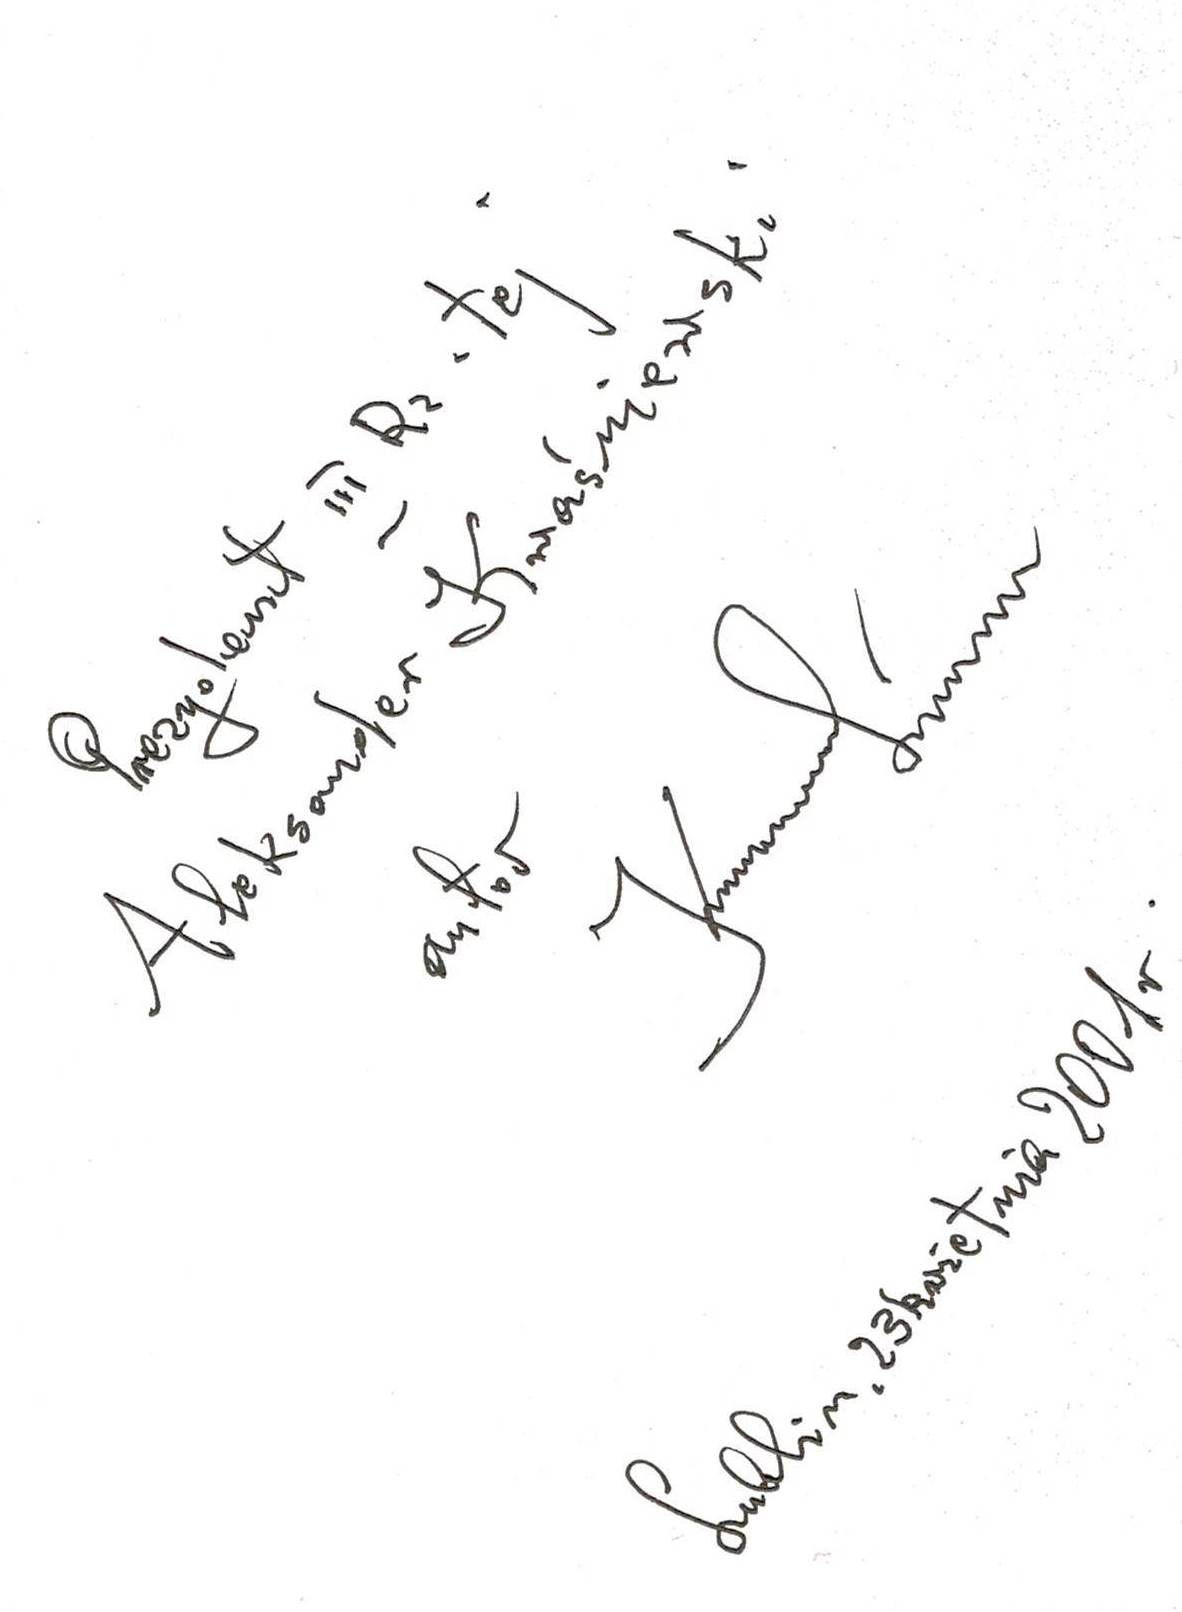 Prezydent III Rz.tej
Aleksander Kwaśniewski
autor
Lublin. 23 kwietnia 2001 r.